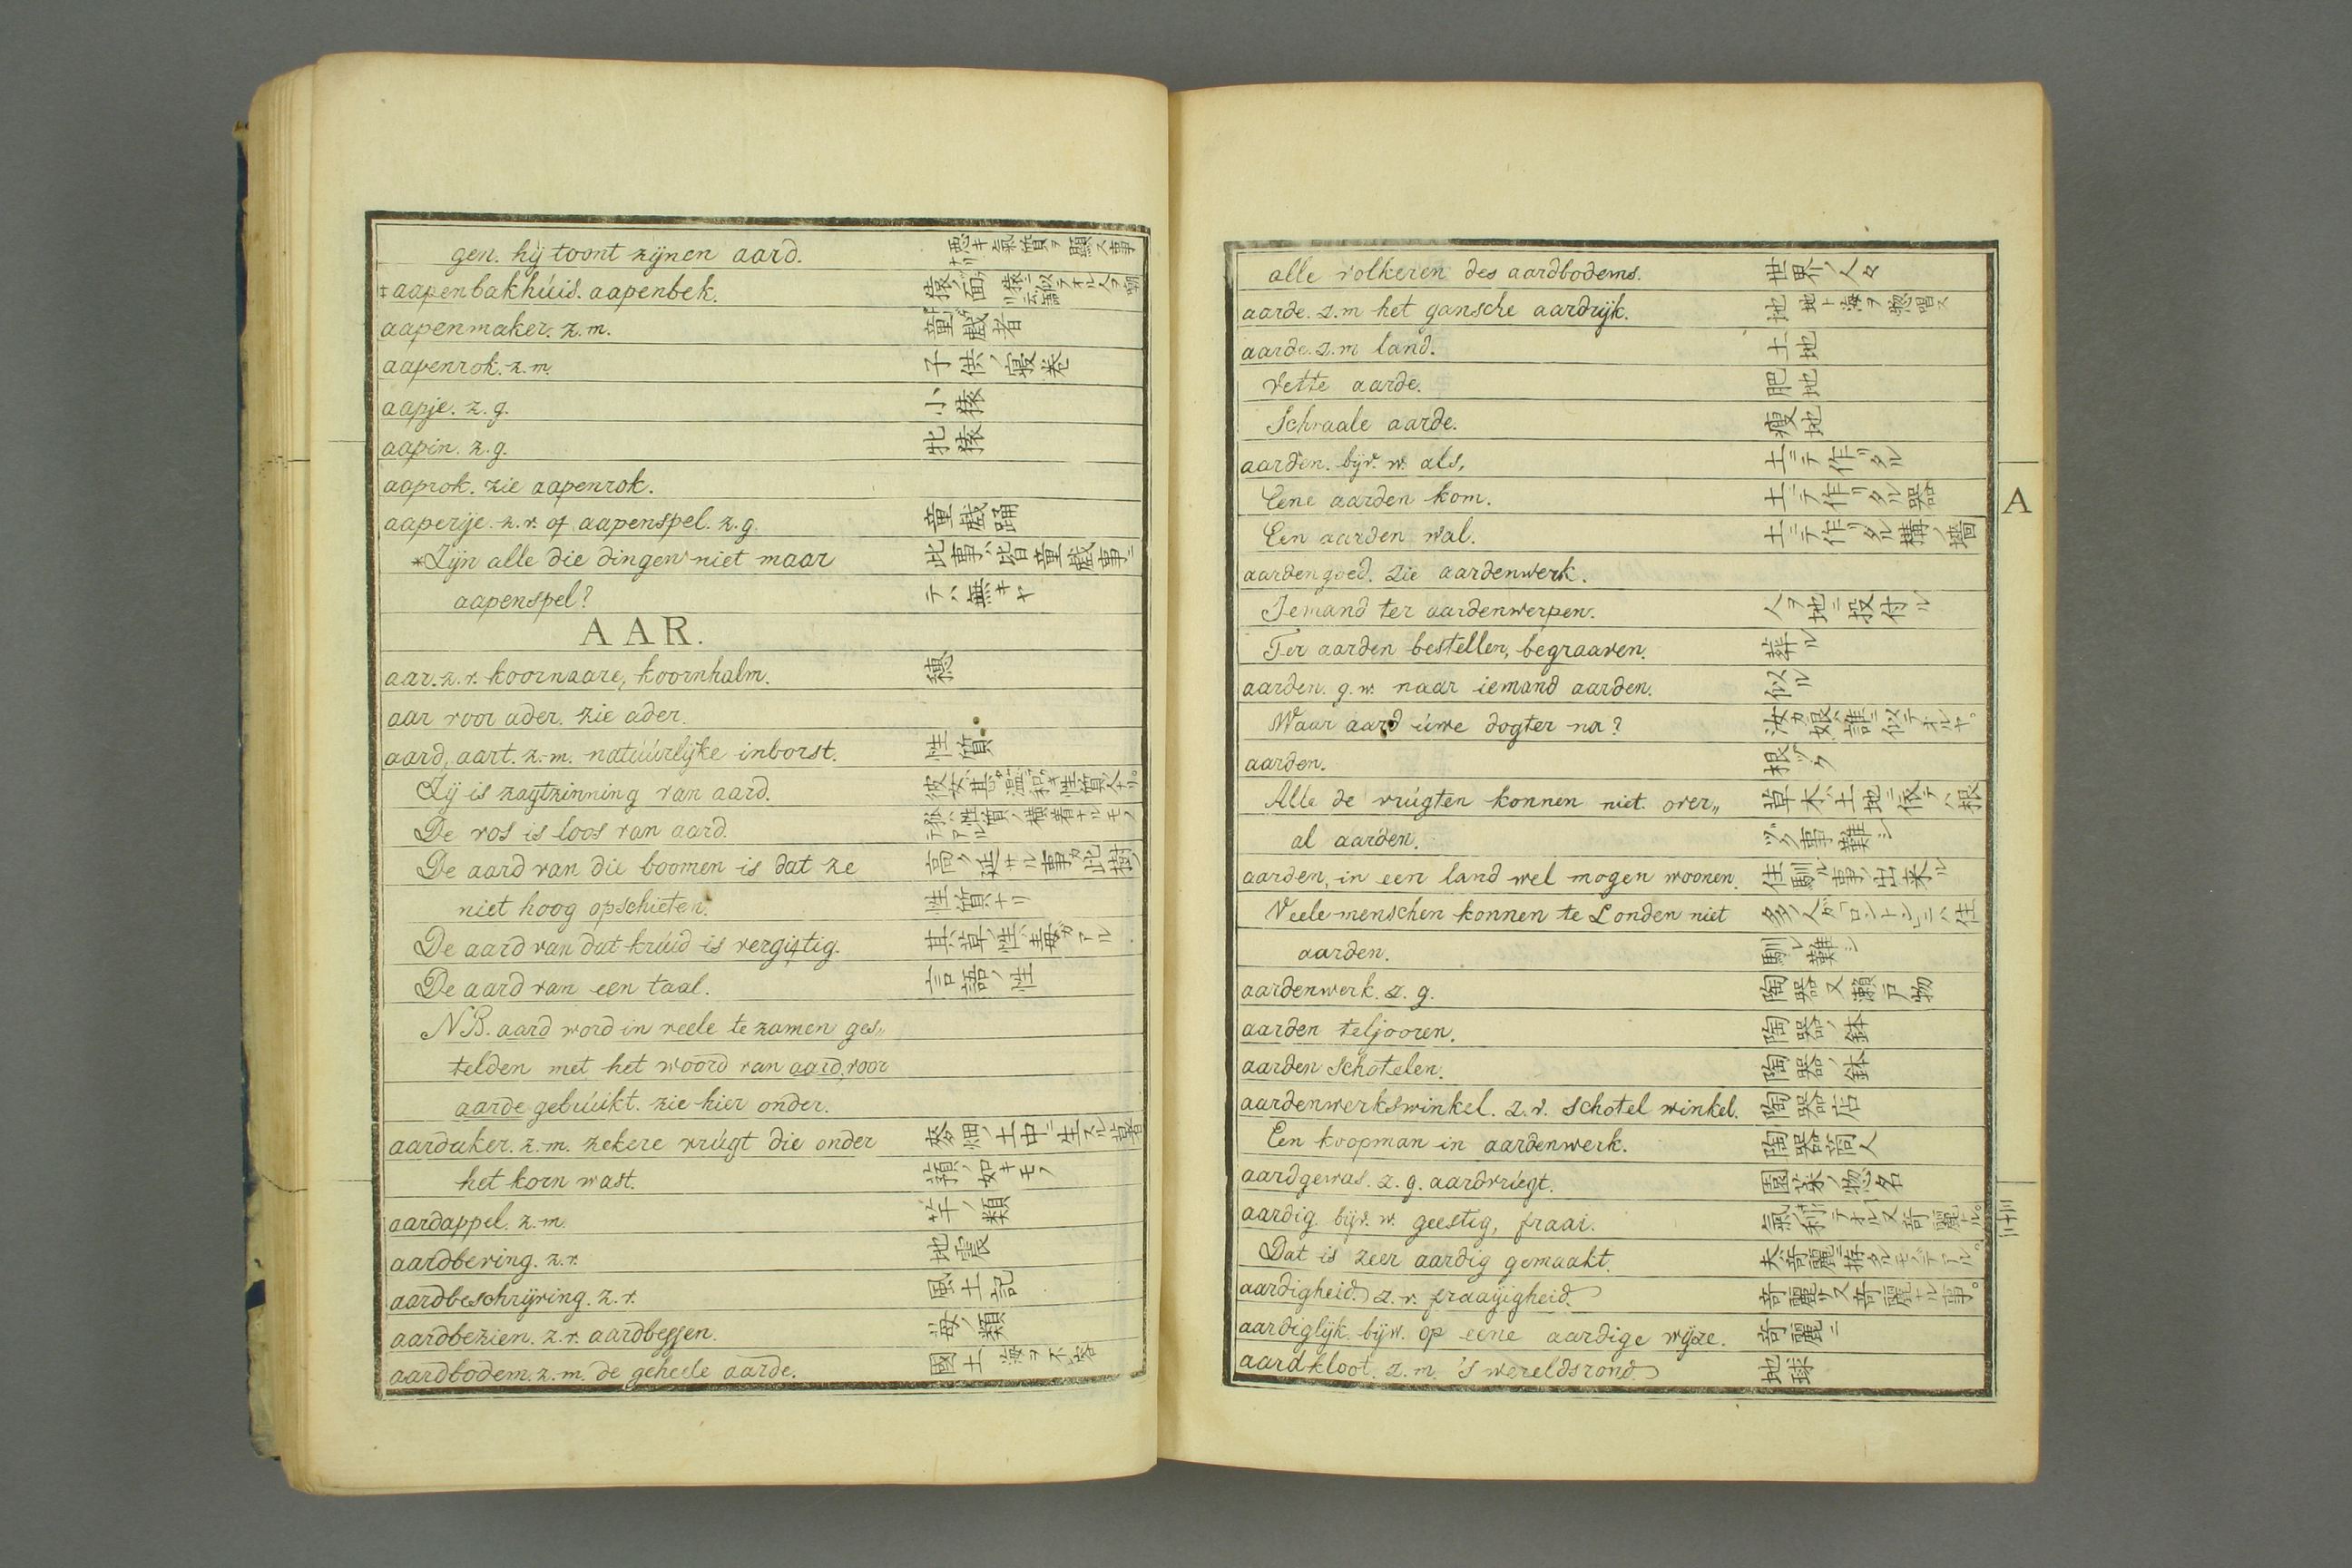 gen. hij toont zijnen aard. 悪キ氣質ヲ顯ス事
‡aapenbakhúis. aapenbek. 猿ノ面
aapenmaker. z.m. 童戯者
aapenrok. z.m. 子供ノ寝巻
aapje. z.g. 小猿
aapin. z.g. 牝猿
aaprok. zie aapenrok.
aaperije. z.v. of aapenspel. z.g. 童戯踊
*Zijn alle die dingen niet maar 此事ハ皆童戯事ニ
aapenspel? テハ無キヤ
AAR.
aar. z.v. koornaare, koornhalm. 穗
aar voor ader. zie ader.
aard, aart. z.m. natúúrlijke inborst. 性質
Zij is zagtzinning van aard. 彼女ハ甚タ温和キ性質ノ人ナリ。
De vos is loos van aard. 狐ハ性質ノ横着ナルモノテアル
De aard van die boomen is dat ze 高ク延サル事カ此樹ノ
niet hoog opschieten. 性質ナリ
De aard van dat krúid is vergiftig. 其草ノ性ハ毒カアル
De aard van een taal. 言語ノ性
NB. aard word in veele te zamen ges„
telden met het woord van aard, voor
aarde gebrúikt. zie hier onder.
aardaker. z.m. zekere vrúgt die onder 麥畑ノ土中ニ生スル
het korn wast. ノ如キモノ
aardappel. z.m. 芋ノ類
aardbeving. z.v. 地震
aardbeschrijving. z.v. 風土記
aardbezien. z.v. aardbessen. 苺ノ類
aardbodem. z.m. de geheele aarde. 國土 海ヲ不容
alle volkeren des aardbodems. 世界ノ人々
aarde. z.m het gansche aardrijk. 地 地ト海ヲ惣唱ス
aarde. z.m land. 土地
vette aarde. 肥地
Schraale aarde. 瘦地
aarden. bijv. w. als, 土ニテ作リタル
Eene aarden kom. 土ニテ作リタル器
Een aarden wal. 土ニテ作リタル構ノ墻
aardengoed. zie aardenwerk.
Iemand ter aardenwerpen. 人ヲ地ニ投付ル
Ter aarden bestellen, begraaven. 葬ル
aarden. g.w. naar iemand aarden. 似ル
Waar aard úwe dogter na? 汝カ娘ハ誰ニ似テオルヤ。
aarden. 根ヅク
Alle de vrúgten konnen niet over„ 草木ハ土地ニ依テハ根
al aarden. ヅク事難シ
aarden, in een land wel mogen woonen. 住馴ル事ノ出來ル
Veele menschen konnen te Londen niet 多ノ人カロントンニハ住
aarden. 馴レ難シ
aardenwerk. z.g. 陶器又瀬戸物
aarden teljooren. 陶器ノ鉢
aarden schotelen. 陶器ノ鉢
aardenwerkswinkel. z.v. schotel winkel. 陶器店
Een koopman in aardenwerk. 陶器商人
aardgewas. z.g. aardvrúgt. 園菜ノ惣名
aardig. bijv. w. geestig, fraai. 氣ノ利テオル又奇麗ナル。
Dat is zeer aardig gemaakt. 夫ハ奇麗ニ拵タルモノテアル。
aardigheid. z.v. fraayigheid. 奇麗サ又奇麗ナル事。
aardiglijk. bijw. op eene aardige wijze. 奇麗ニ
aardkloot. z.m. 's wereldsrond. 地球
A